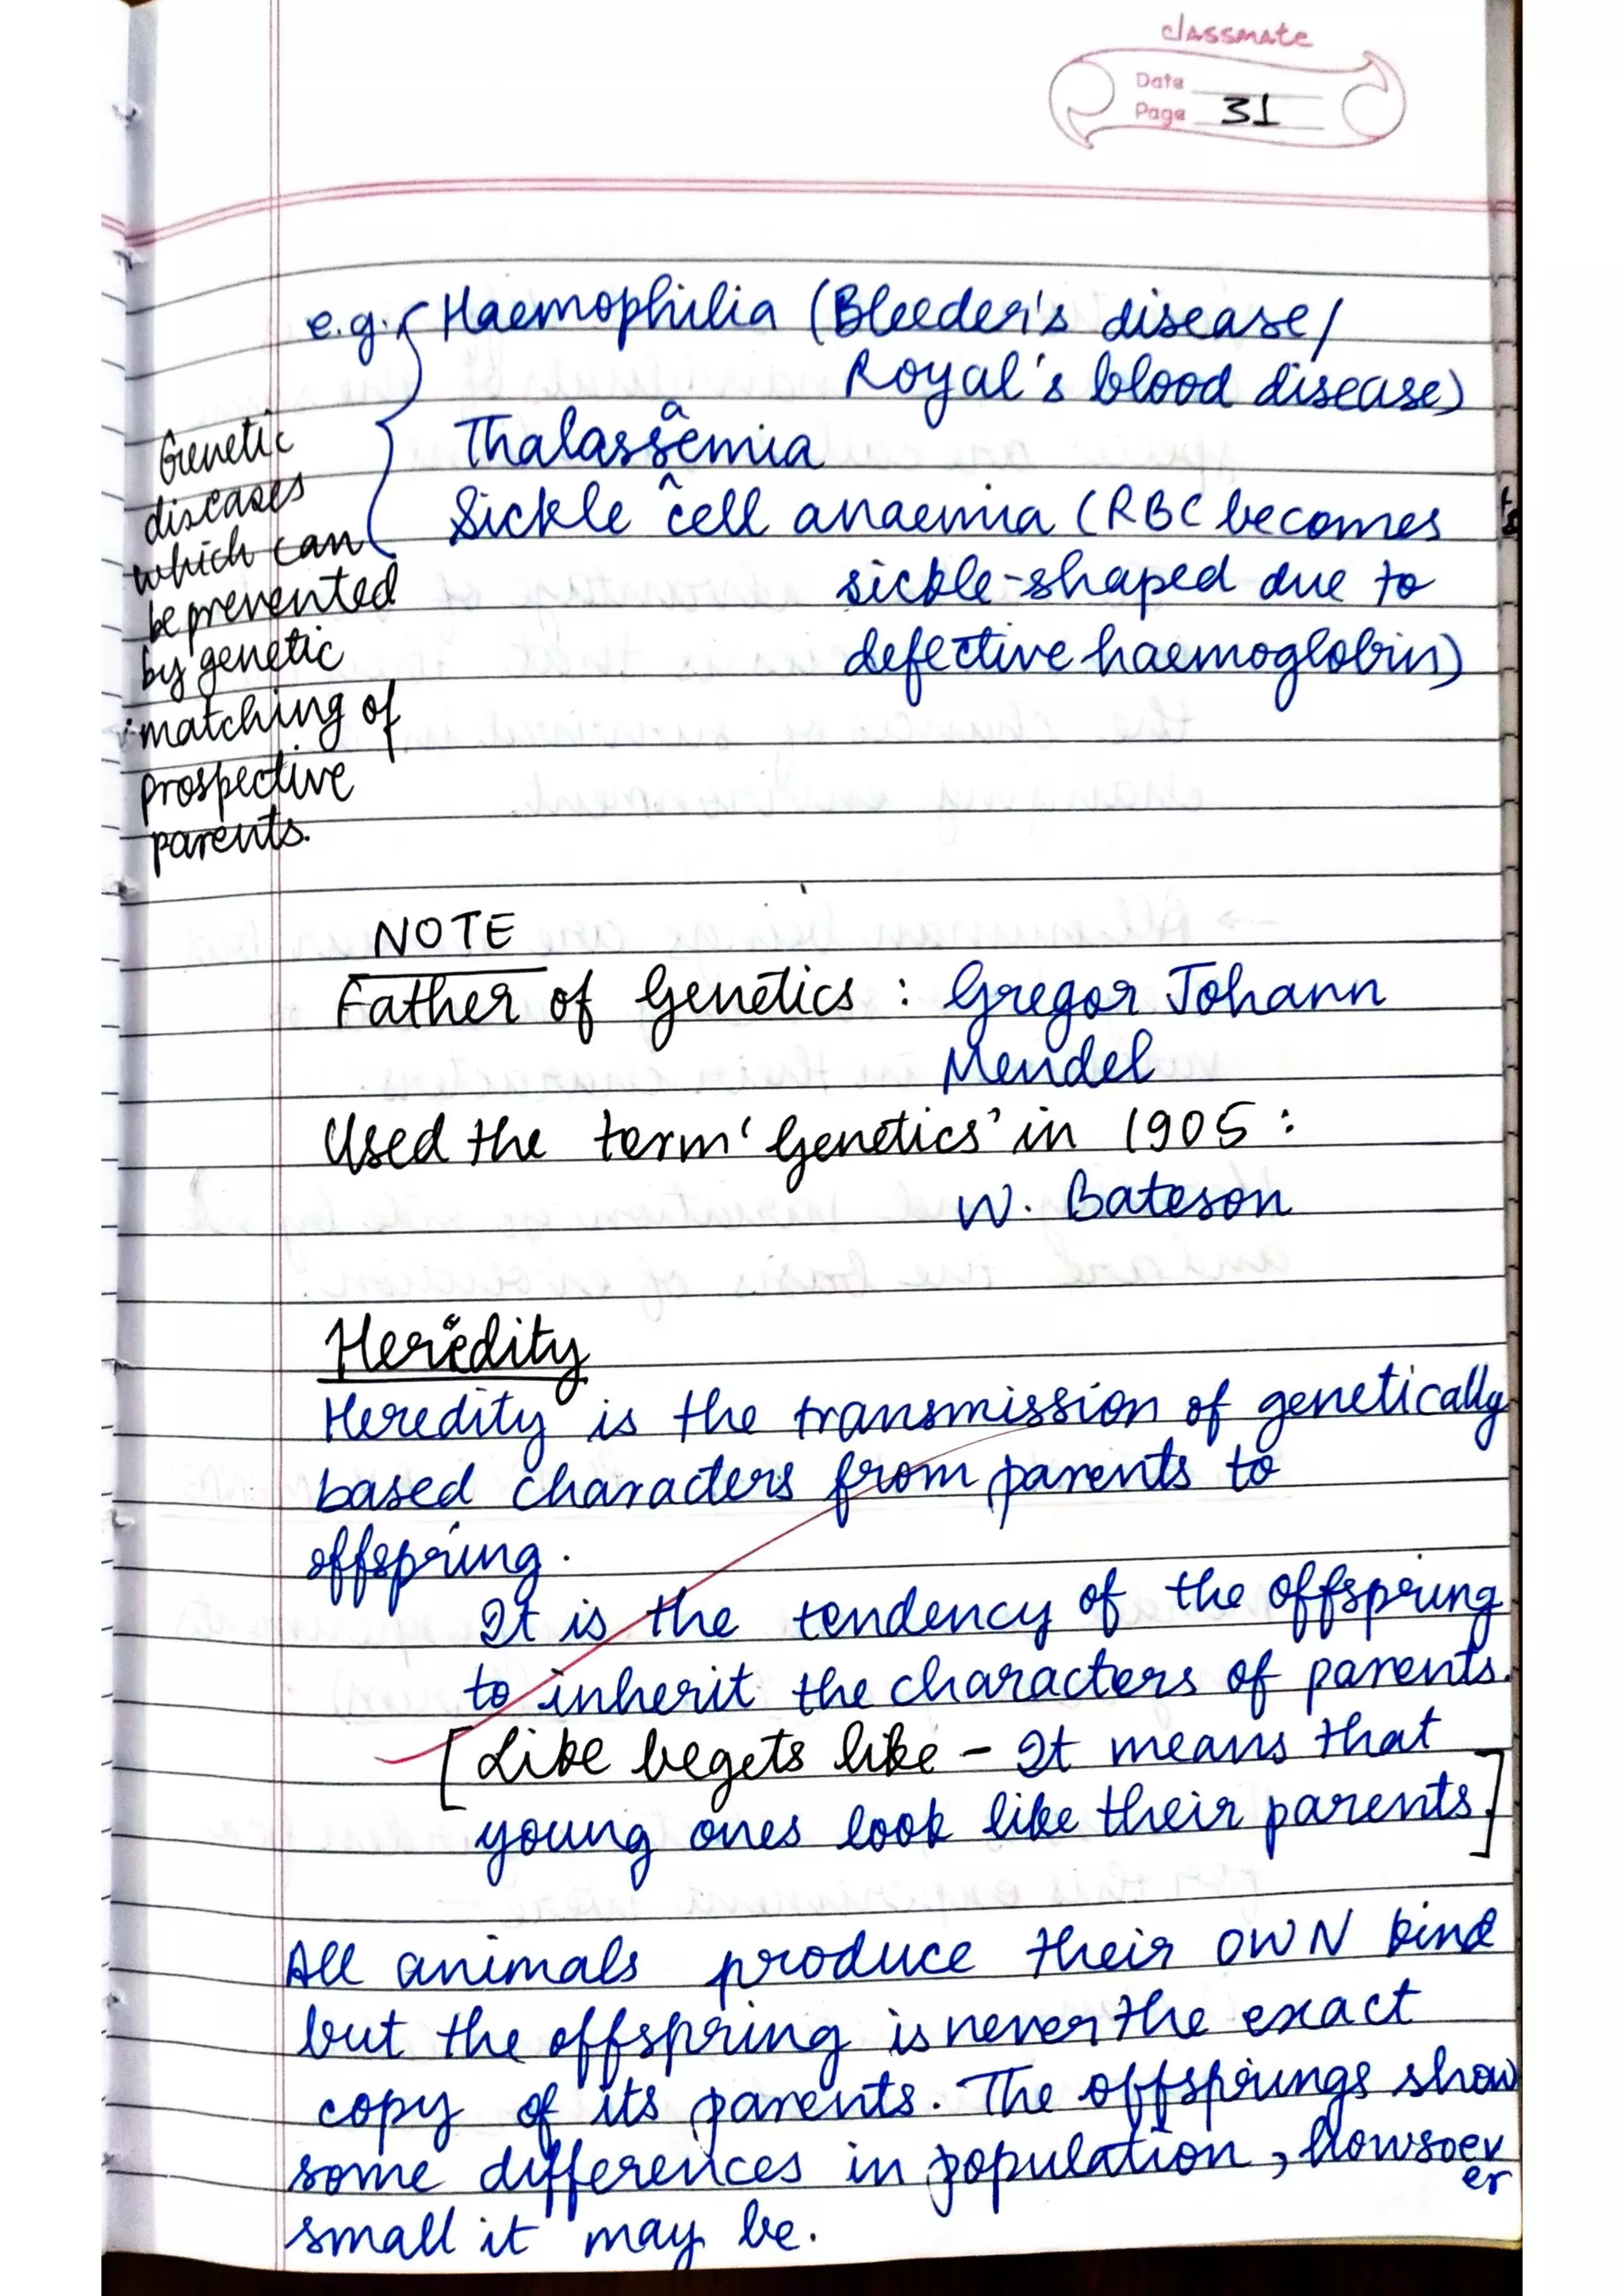 classmate
Date
Page 31
e.g. Haemophilia (Bleeder's disease/
Royal's blood disease)
Thalassaemia
Sickle cell anaemia (RBC becomes
sickle-shaped due to
defective haemoglobin)
Genetic
diseases
which can
be prevented
by genetic
matching of
prospective
parents.
NOTE
Father of Genetics : Gregor Johann
Mendel
Used the term 'Genetics' in 1905 :
W. Bateson
Heredity
Heredity is the transmission of genetically
based characters from parents to
offspring.
It is the tendency of the offspring
to inherit the characters of parents.
[Like begets like - It means that
young ones look like their parents]
All animals produce their OWN kind
but the offspring is never the exact
copy of its parents. The offsprings show
some differences in population, howsoev
er
small it may be.